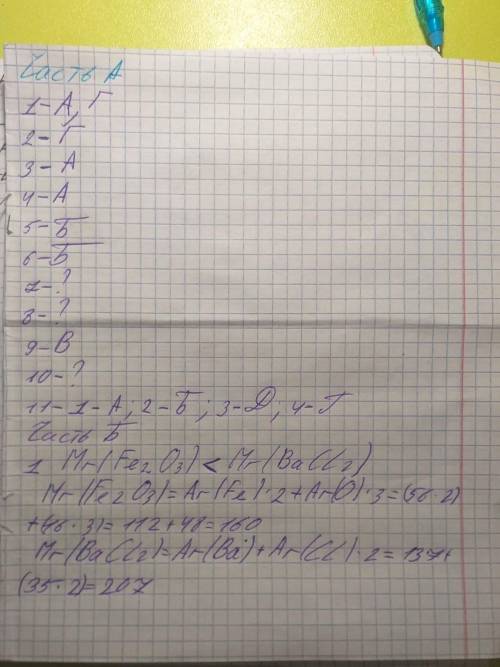 Часть А
1-А, Г
2-Г
3-А
4-А
5-Б
6-Б
7-?
8-?
9-В
10-?
11-1-А; 2-Б; 3-Д; 4-Г
Часть Б
1 Mr(Fe2O3) < Mr(BaCl2)
Mr(Fe2O3)=Ar(Fe)·2+Ar(O)·3=(56·2)
+(16·3)=112+48=160
Mr(BaCl2)=Ar(Ba)+Ar(Cl)·2=137+
(35·2)=207